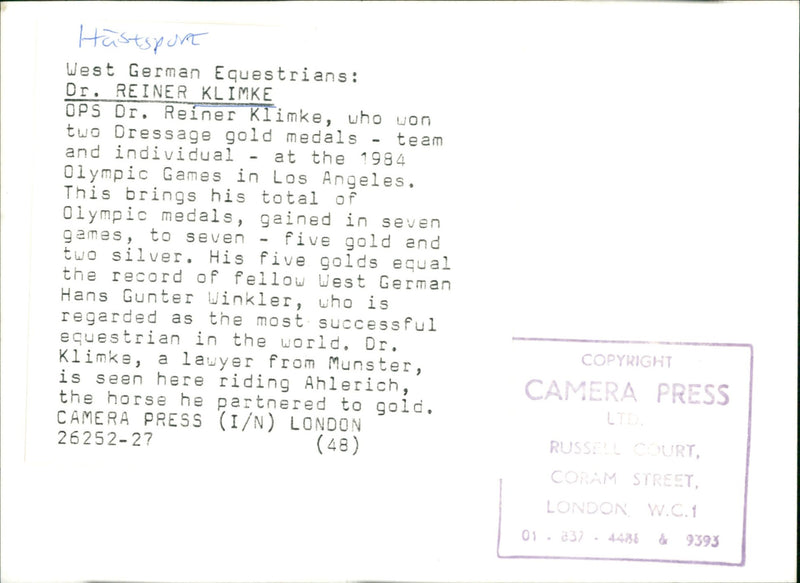 Hästsport
West German Equestrians:
Dr. REINER KLIMKE
OPS Dr. Reiner Klimke, who won
two Dressage gold medals - team
and individual - at the 1984
Olympic Games in Los Angeles.
This brings his total of
Olympic medals, gained in seven
games, to seven - five gold and
two silver. His five golds equal
the record of fellow West German
Hans Gunter Winkler, who is
regarded as the most successful
equestrian in the world. Dr.
Klimke, a lawyer from Munster,
is seen here riding Ahlerich,
the horse he partnered to gold.
CAMERA PRESS (I/N) LONDON
26252-27 (48)
COPYRIGHT
CAMERA PRESS
LTD.
RUSSELL COURT,
CORAM STREET,
LONDON, W.C.1
01 - 837 - 4488 & 9393